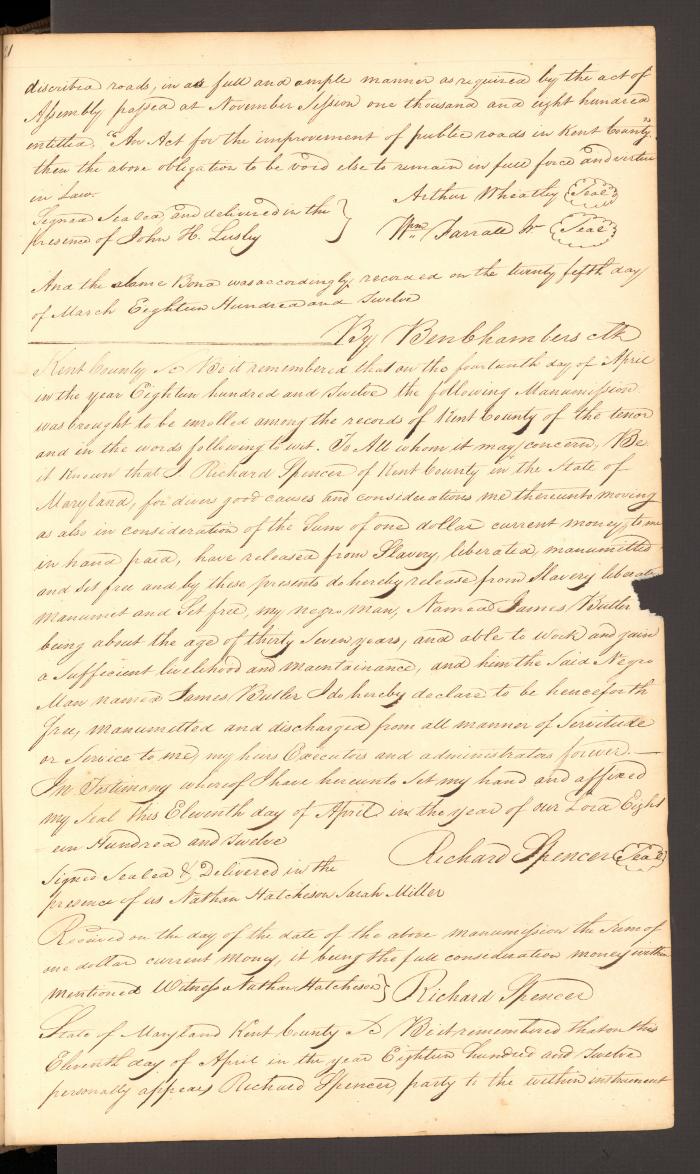 discribed roads, in as full and ample manner as required by the act of
Assembly passed at November Session one thousand and eight hundred
entitled, "An Act for the improvement of public roads in Kent County"
then the above obligation to be void else to remain in full force and virtue
in Law.
Arthur Wheatley Seal
Signed Sealed and delivered in the
presence of John H. Lusby
Wm Farrall Jr Seal
And the same Bond was accordingly recorded on the twenty fifth day
of March Eighteen Hundred and Twelve
By Ben Chambers Clk
Kent County Sc Be it remembered that on the fourteenth day of April
in the year Eighteen hundred and Twelve the following Manumission
was brought to be enrolled among the records of Kent County of the tenor
and in the words following to wit. To All whom it may concern, Be
it known that I Richard Spencer of Kent County in the State of
Maryland, for divers good causes and considerations me thereunto moving
as also in consideration of the Sum of one dollar current money, to me
in hand paid, have released from Slavery, liberated, manumitted
and Set free and by these presents do hereby release from Slavery liberate
manumet and Set free, my negro man, Named James Butler
being about the age of thirty Seven years, and able to work and gain
a Sufficient livelihood and maintainance, and him the Said Negro
Man named James Butler I do hereby declare to be henceforth
free, manumitted and discharged from all manner of Servitude
or Service to me, my heirs Executors and administrators forever.
In Testimony whereof I have hereunto Set my hand and affixed
my Seal this Eleventh day of April in the year of our Lord Eight
een Hundred and Twelve
Richard Spencer Seal
Signed Sealed & Delivered in the
presence of us Nathan Hatcheson Sarah Miller
Received on the day of the date of the above manumission the Sum of
one dollar current money, it being the full consideration money within
mentioned Witness Nathan Hatcheson Richard Spencer
State of Maryland Kent County Sc Be it remembered that on this
Eleventh day of April in the year Eighteen hundred and twelve
personally appears Richard Spencer, party to the within instrument